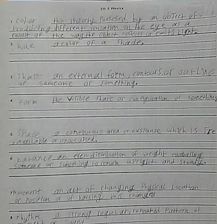 color the property possessed by an object of
producing different sensation on the eye as a
result of the way the object reflects or emits light.
a color or a shade.
shape an external form, contours or outline
of someone or something.
Form the visible shape or configuration of something
space a continuous area or expanse which is free
available or unoccupied.
balance an even distribution of weight enabling
someone or something to remain upright and steady.
movement an act of changing physical location
or position or of having this changed
rhythm a strong regular repeated pattern of